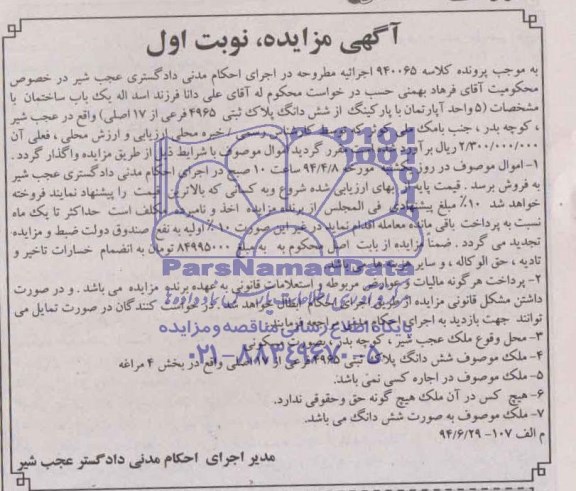 آگهی مزایده، نوبت اول
به موجب پرونده کلاسه ۹۴۰۰۶۵ اجرائیه مطروحه در اجرای احکام مدنی دادگستری عجب شیر در خصوص
محکومیت آقای فرهاد بهمنی حسب در خواست محکوم له آقای علی دانا فرزند اسد اله یک باب ساختمان با
مشخصات (۵ واحد آپارتمان با پارکینگ از شش دانگ پلاک ثبتی ۴۹۶۵ فرعی از ۱۷ اصلی) واقع در عجب شیر
، کوچه بدر ، جنب بامک که توسط کارشناس رسمی خبره محلی ارزیابی و ارزش محلی ، فعلی آن
۲/۳۰۰/۰۰۰/۰۰۰ ریال بر آورد شده است مقرر گردید اموال موصوف با شرایط ذیل از طریق مزایده واگذار گردد .
۱- اموال موصوف در روز یکشنبه مورخه ۹۴/۴/۸ ساعت ۱۰ صبح در اجرای احکام مدنی دادگستری عجب شیر
به فروش برسد . قیمت پایه از بهای ارزیابی شده شروع وبه کسانی که بالاترین قیمت را پیشنهاد نمایند فروخته
خواهد شد ۱۰٪ مبلغ پیشنهادی فی المجلس از برنده مزایده اخذ و نامبرده مکلف است حداکثر تا یک ماه
نسبت به پرداخت باقی مانده معامله اقدام نماید در غیر این صورت ۱۰٪ اولیه به نفع صندوق دولت ضبط و مزایده
تجدید می گردد . ضمناً مزایده از بابت اصل محکوم به به مبلغ ۸۴۹۹۵۰۰۰ تومان به انضمام خسارات تاخیر و
تادیه ، حق الوکاله ، و سایر هزینه ها می باشد
ParsNamadData
۲- پرداخت هر گونه مالیات و عوارض مربوطه و استعلامات قانونی به عهده برنده مزایده می باشد . و در صورت
داشتن مشکل قانونی مزایده از طریق اجرای احکام ابطال خواهد شد . در خواست کنندگان در صورت تمایل می
توانند جهت بازدید به اجرای احکام مدنی مراجعه فرمایند
پایگاه اطلاع رسانی مناقصه و مزایده
۳- محل وقوع ملک عجب شیر ، کوچه بدر ، بصورت مسکونی
۰۲۱-۸۸۳۴۹۶۷۰-۵
۴- ملک موصوف شش دانگ پلاک ثبتی ۴۹۶۵ فرعی از ۱۷ اصلی واقع در بخش ۴ مراغه
۵- ملک موصوف در اجاره کسی نمی باشد.
۶- هیچ کس در آن ملک هیچ گونه حق وحقوقی ندارد.
۷- ملک موصوف به صورت شش دانگ می باشد.
م الف ۱۰۷- ۹۴/۶/۲۹
مدیر اجرای احکام مدنی دادگستر عجب شیر